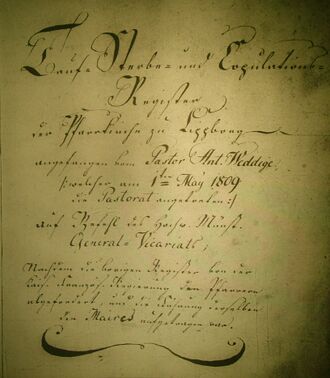 Tauf- Sterbe- und Copulations-
Register
der Pfarrkirche zu Lippborg
angefangen vom Pastor Ant. Weddige
/:welcher am 1ten May 1809
die Pastorat angetreten:/
auf Befehl des Hochw. Münst.
General-Vicariats,
Nachdem die vorigen Register von der
Kais. französ. Regierung den Pfarrern
abgefordert, und die Führung derselben
den Maires aufgetragen war.